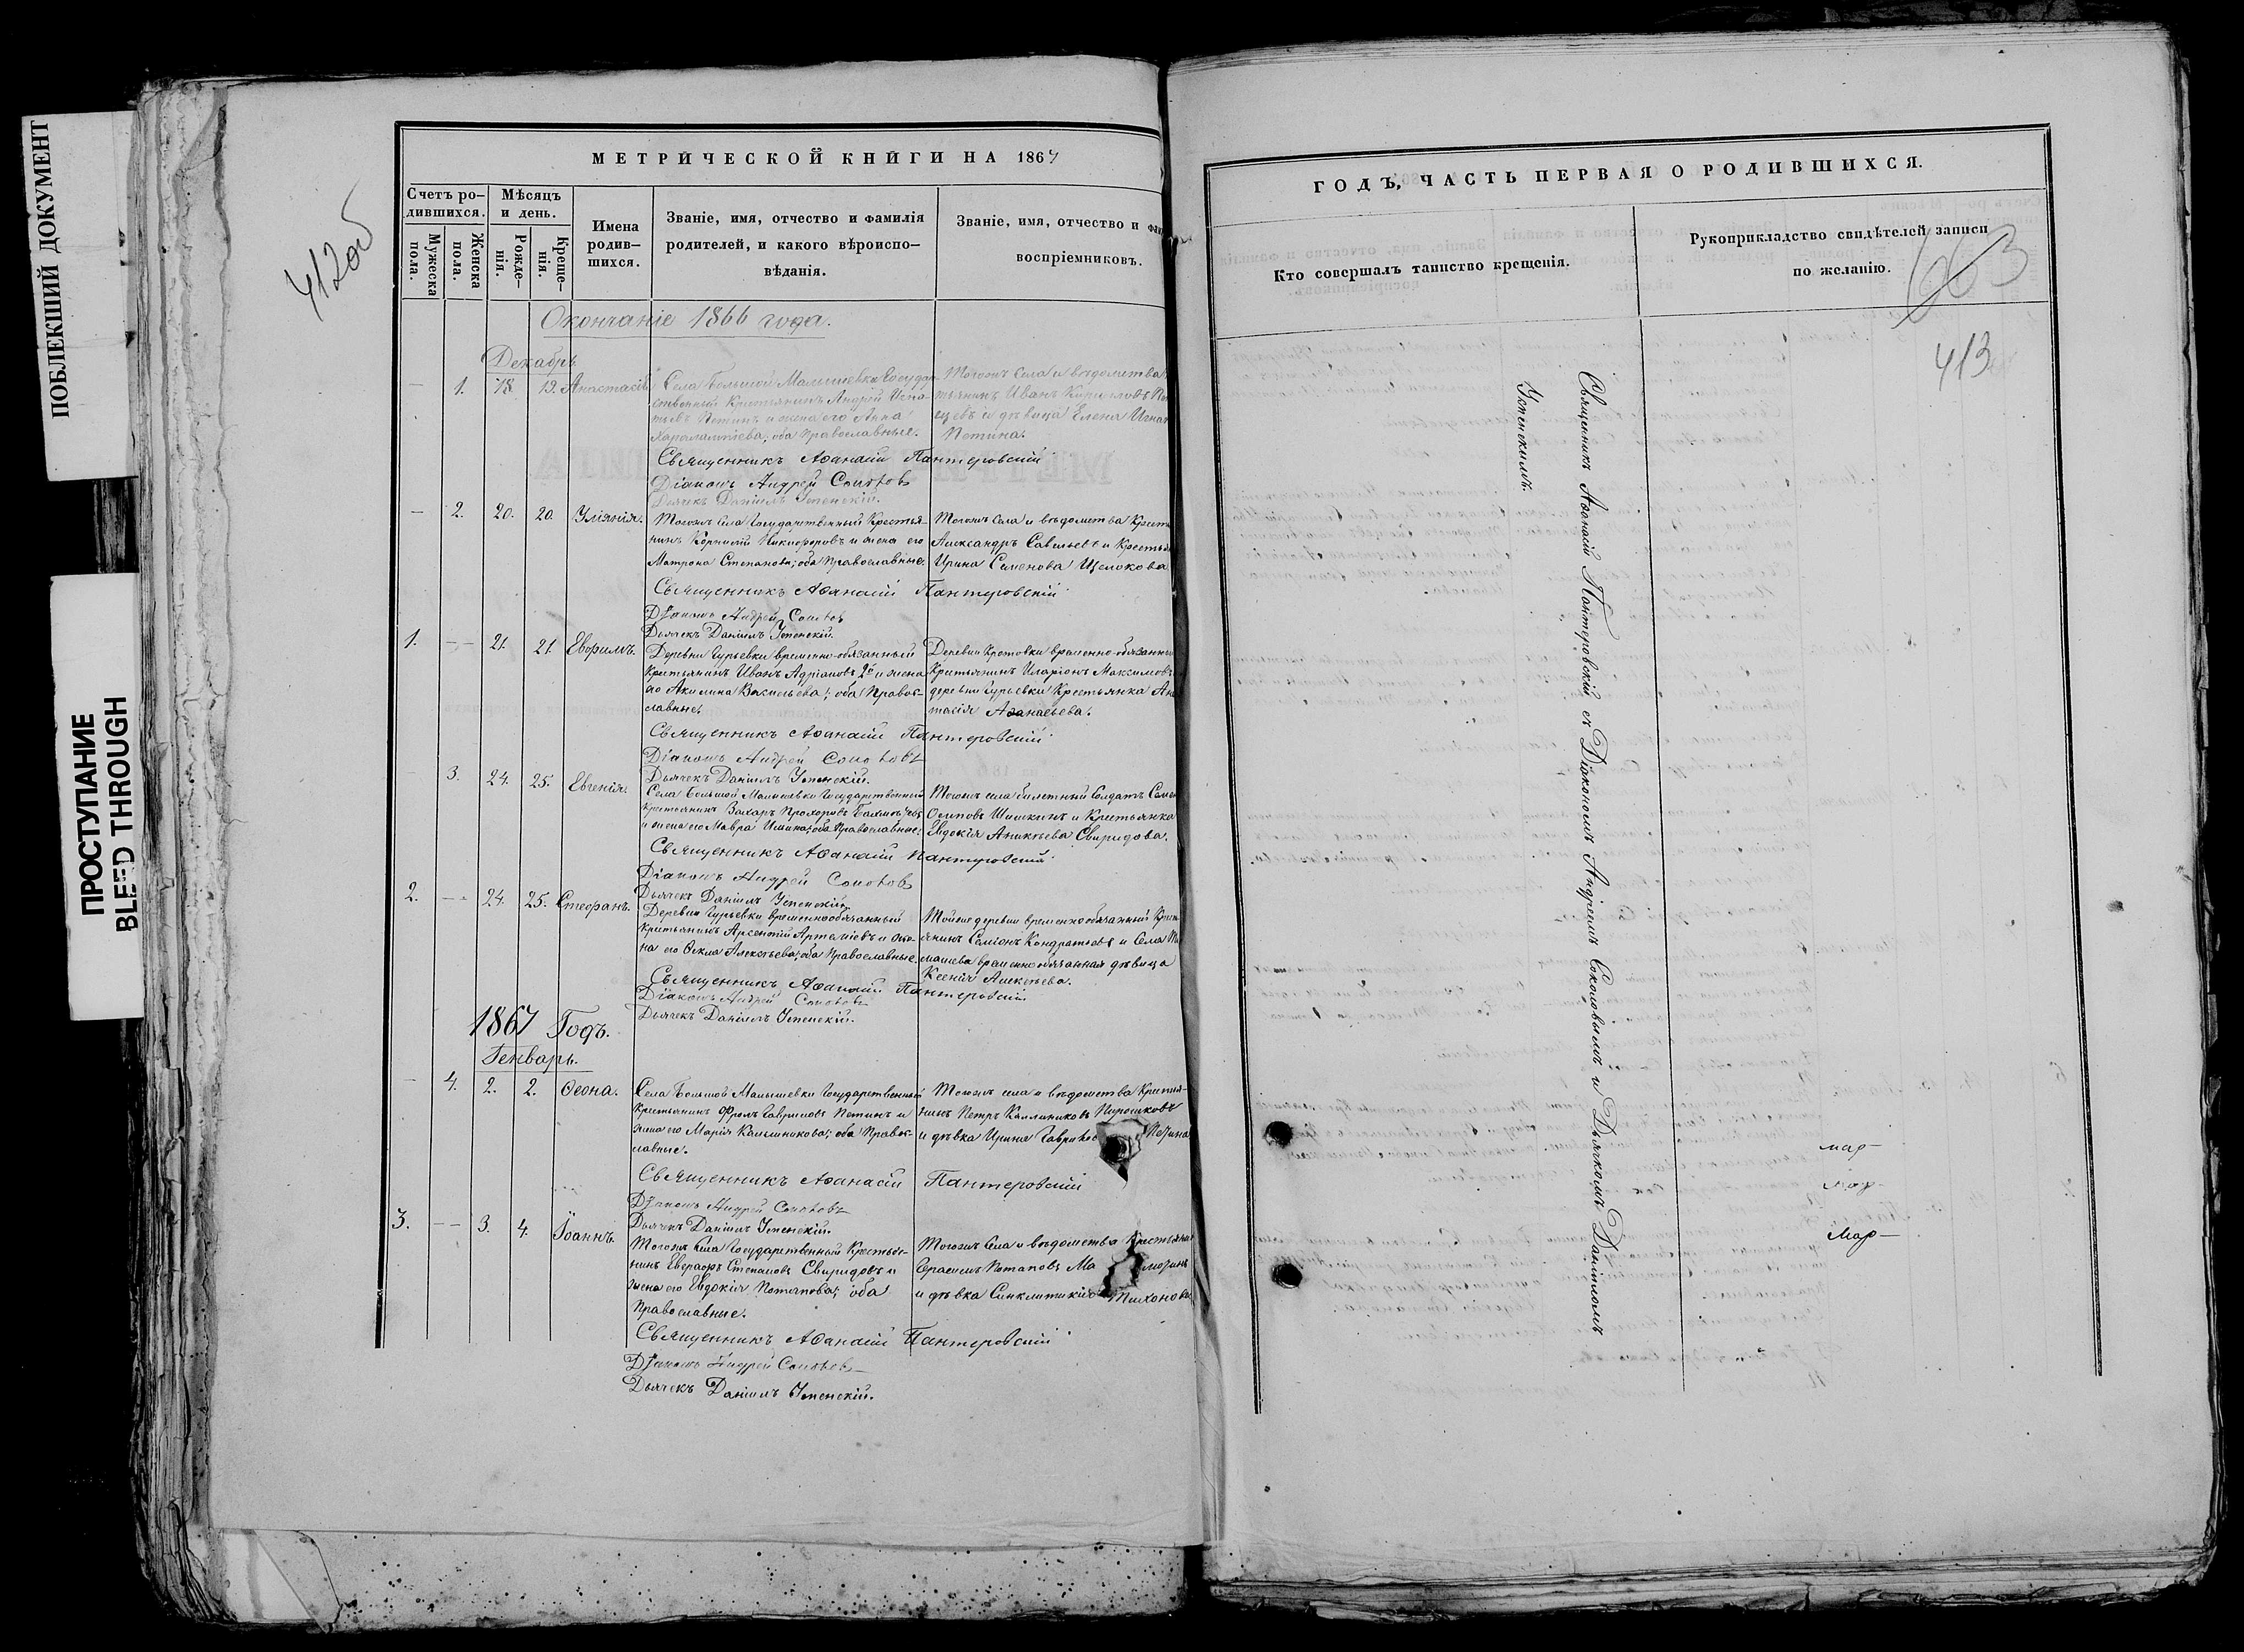 ПОБЛЕКШИЙ ДОКУМЕНТ
ПРОСТУПАНИЕ
BLEED THROUGH
412об
МЕТРИЧЕСКОЙ КНИГИ НА 1867
Счетъ ро-
дившихся.
Мужеска
пола.
Женска
пола.
Мѣсяцъ
и день.
Рожде-
нія.
Креще-
нія.
Имена
родив-
шихся.
Званіе, имя, отчество и фамилія
родителей, и какого вѣроиспо-
вѣданія.
Званіе, имя, отчество и фа
воспріемниковъ.
Окончаніе 1866 года.
Декабрь
— 1. 18 19. Анастасія
Села Большой Малышевки Государ-
ственный Крестьянинъ Андрей Игна-
тьевъ Петинъ и жена его Анна
Харлампіева; оба Православные.
Тогожъ Села и вѣдомства
тьянинъ Иванъ Кирилловъ
и дѣвица Елена Игнат
Петина.
Священникъ Аѳанасій Пантеровскій
Діаконъ Андрей Соколовъ
Дьячекъ Даніилъ Успенскій.
— 2. 20. 20. Уліянія.
Тогожъ Села Государственный Крестья-
нинъ Корнилій Никифоровъ и жена его
Матрона Степанова; оба Православные.
Тогожъ Села и вѣдомства Крест
Александръ Савельевъ и Крестья
Ирина Семенова Щелокова
Священникъ Аѳанасій Пантеровскій
Діаконъ Андрей Соколовъ
Дьячекъ Даніилъ Успенскій.
1. — 21. 21. Евѳимъ.
Деревни Гурьевки временно-обязанный
Крестьянинъ Иванъ Адріановъ 2й и жена
его Акилина Васильева; оба Правос-
лавные.
Деревни Кротовки временно-обязанный
Крестьянинъ Иларіонъ Максимовъ
деревни Гурьевки Крестьянка Ана
тасія Аѳанасьева.
Священникъ Аѳанасій Пантеровскій
Діаконъ Андрей Соколовъ
Дьячекъ Даніилъ Успенскій.
3. 24. 25. Евгенія.
Села Большой Малышевки Государственный
Крестьянинъ Захаръ Прохоровъ
и жена его Мавра Ильина; оба Православные.
Тогожъ села билетный Солдатъ Семен
Осиповъ Шишкинъ и Крестьянка
Евдокія Аникіева Свиридова.
Священникъ Аѳанасій Пантеровскій
Діаконъ Андрей Соколовъ
Дьячекъ Даніилъ Успенскій.
2. — 24. 25. Стефанъ.
Деревни Гурьевки временнообязанный
Крестьянинъ Арсентій Артеміевъ и же-
на его Ѳекла Алексѣева; оба Православные.
Тойже деревни временнообязанный Крест
янинъ Семіонъ Кондратьевъ и Села
временнообязанная дѣвица
Ксенія Алексѣева.
Священникъ Аѳанасій Пантеровскій
Діаконъ Андрей Соколовъ
Дьячекъ Даніилъ Успенскій.
1867 Годъ.
Генварь.
— 4. 2. 2. Ѳеона.
Села Большой Малышевки Государственный
Крестьянинъ Фролъ Гавриловъ Петинъ и
жена его Марія Каллиникова; оба Правос-
лавные.
Тогожъ села и вѣдомства Крестья-
нинъ Петръ Каллиниковъ Пирожковъ
и дѣвка Ирина Гаврило Петина
Священникъ Аѳанасій Пантеровскій
Діаконъ Андрей Соколовъ
Дьячекъ Даніилъ Успенскій.
3. — 3. 4. Іоаннъ.
Тогожъ Села Государственный Крестья-
нинъ Евграфъ Степановъ Свиридовъ и
жена его Евдокія Потапова; оба
Православные.
Тогожъ Села и вѣдомства Крестьяни
Герасимъ Потаповъ Ма
и дѣвка Синклитикія Тихонова
Священникъ Аѳанасій Пантеровскій
Діаконъ Андрей Соколовъ
Дьячекъ Даніилъ Успенскій.
ГОДЪ, ЧАСТЬ ПЕРВАЯ О РОДИВШИХСЯ.
Кто совершалъ таинство крещенія.
Рукоприкладство свидѣтелей записи
по желанію.
663
413
Священникъ Аѳанасій Пантеровскій съ Діакономъ Андреемъ Соколовымъ и Дьячкомъ Даніиломъ
Успенскимъ.
мар-
мар-
Мар-